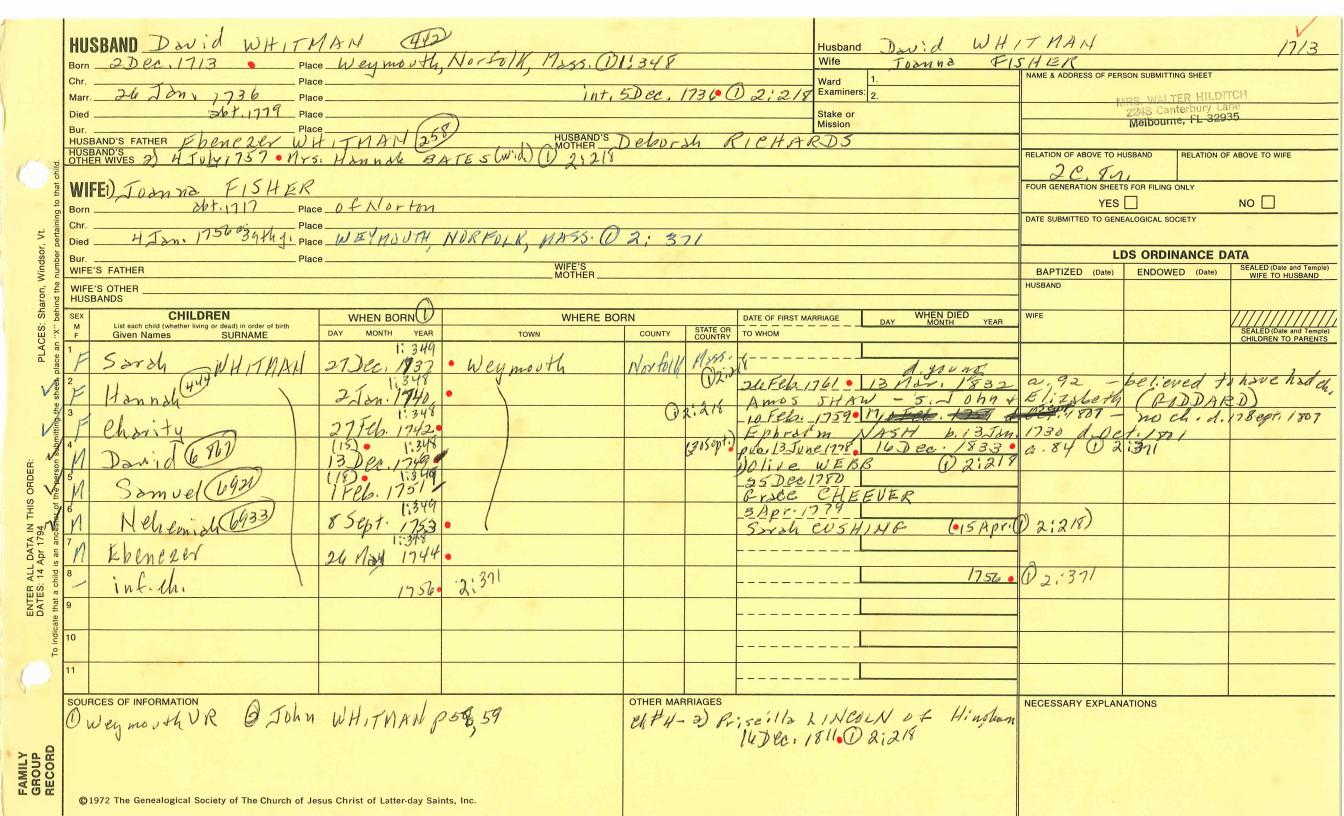 HUSBAND David WHITMAN 442
Born 2 Dec. 1713 Place Weymouth, Norfolk, Mass. ① 1:348
Chr. Place
Marr. 26 Jan. 1736 Place int. 5 Dec. 1736 ① 2:218
Died abt. 1779 Place
Bur. Place
HUSBAND'S FATHER Ebenezer WHITMAN 258 HUSBAND'S MOTHER Deborah RICHARDS
HUSBAND'S OTHER WIVES 2) 4 July 1757 Mrs. Hannah BATES (wid) ① 2:218
Husband David WHITMAN 1713
Wife Joanna FISHER
Ward Examiners: 1.
2.
Stake or Mission
NAME & ADDRESS OF PERSON SUBMITTING SHEET
MRS. WALTER HILDITCH
Canterbury Lane
Melbourne, FL 32935
RELATION OF ABOVE TO HUSBAND RELATION OF ABOVE TO WIFE
FOUR GENERATION SHEETS FOR FILING ONLY
YES NO
DATE SUBMITTED TO GENEALOGICAL SOCIETY
WIFE 1) Joanna FISHER
Born abt. 1717 Place of Norton
Chr. Place
Died 4 Jan. 1756 39th y. Place WEYMOUTH, NORFOLK, MASS. ① 2:371
Bur. Place
WIFE'S FATHER WIFE'S MOTHER
WIFE'S OTHER HUSBANDS
LDS ORDINANCE DATA
BAPTIZED (Date) ENDOWED (Date) SEALED (Date and Temple) WIFE TO HUSBAND
HUSBAND
WIFE
SEALED (Date and Temple) CHILDREN TO PARENTS
SEX M F CHILDREN List each child (whether living or dead) in order of birth Given Names SURNAME
WHEN BORN ① DAY MONTH YEAR
WHERE BORN TOWN COUNTY STATE OR COUNTRY
DATE OF FIRST MARRIAGE TO WHOM
WHEN DIED DAY MONTH YEAR
1 F Sarah WHITMAN 27 Dec. 1737 1:349 Weymouth Norfolk Mass. d. young
2 F Hannah 444 2 Jan. 1740 1:348 ① 2:218 26 Feb. 1761 13 Mar. 1832 a. 92 - believed to have had ch.
Amos SHAW - s. John & Elizabeth (BIDDARD)
3 F Charity 27 Feb. 1742 1:348 ① 2:218 10 Feb. 1759 17 1807 - no ch. d. 17 Sept. 1807
Ephraim NASH b. 13 Jan. 1730 d. Oct. 1801
4 M David 6867 (15) 13 Dec. 1749 1:348 (30 Sept.) 13 June 1778 16 Dec. 1833 a. 84 ① 2:371
1) Olive WEBB ① 2:218
5 M Samuel 6921 (18) 1 Feb. 1751 1:349 25 Dec 1780
Grace CHEEVER
6 M Nehemiah 6933 8 Sept. 1753 1:349 3 Apr. 1779
Sarah CUSHING (15 Apr. ① 2:218)
7 M Ebenezer 26 May 1744 1:348
8 - inf. ch. 1756 2:371 1756 ① 2:371
9
10
11
SOURCES OF INFORMATION
① Weymouth VR ② John WHITMAN p 58, 59
OTHER MARRIAGES
Ch #4 - 2) Priscilla LINCOLN of Hingham
16 Dec. 1811 ① 2:218
NECESSARY EXPLANATIONS
©1972 The Genealogical Society of The Church of Jesus Christ of Latter-day Saints, Inc.
FAMILY GROUP RECORD
ENTER ALL DATA IN THIS ORDER: PLACES: Sharon, Windsor, Vt.
DATES: 14 Apr 1794
To indicate that a child is an ancestor of the person submitting the sheet, place an "X" behind the number pertaining to that child.